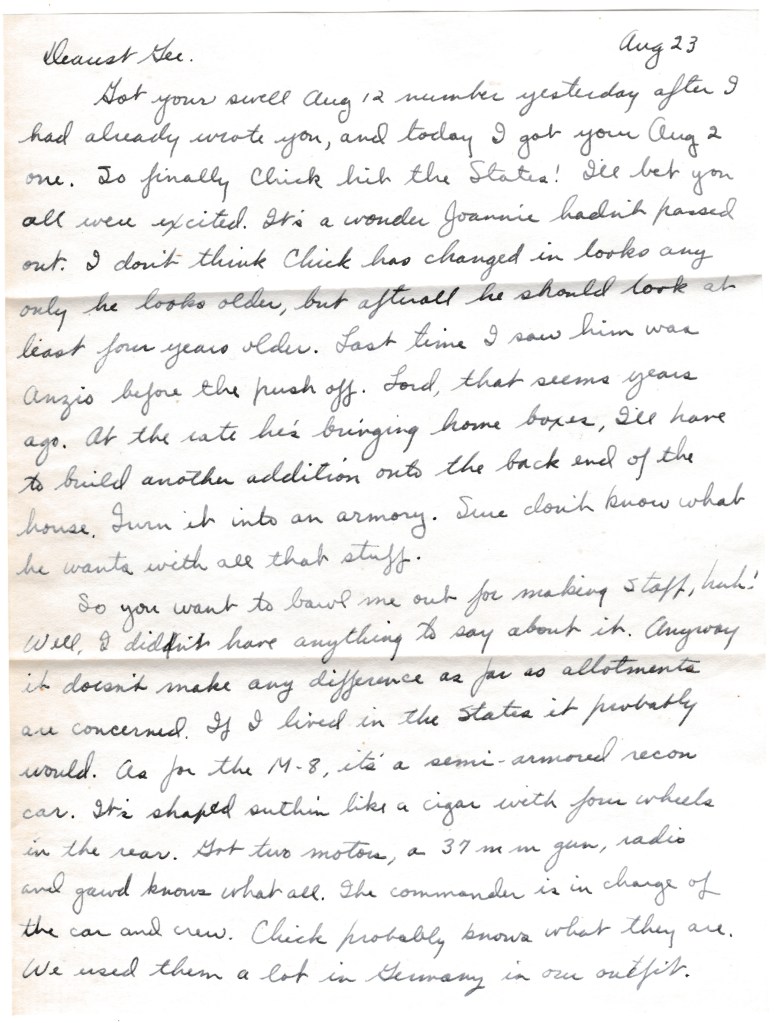 Dearest Gee. Aug 23
Got your swell Aug 12 number yesterday after I
had already wrote you, and today I got your Aug 2
one. So finally Chick hit the States! I'll bet you
all were excited. It's a wonder Joannie hadn't passed
out. I don't think Chick has changed in looks any
only he looks older, but afterall he should look at
least four years older. Last time I saw him was
Anzio before the push off. Lord, that seems years
ago. At the rate he's bringing home boxes, I'll have
to build another addition onto the back end of the
house. Turn it into an armory. Sure don't know what
he wants with all that stuff.
So you want to bawl me out for making Staff, huh!
Well, I didn't have anything to say about it. Anyway
it doesn't make any difference as far as allotments
are concerned. If I lived in the States it probably
would. As for the M-8, it's a semi-armored recon
car. It's shaped suthin like a cigar with four wheels
in the rear. Got two motors, a 37 m m gun, radio
and gawd knows what all. The commander is in charge of
the car and crew. Chick probably knows what they are.
We used them a lot in Germany in our outfit.